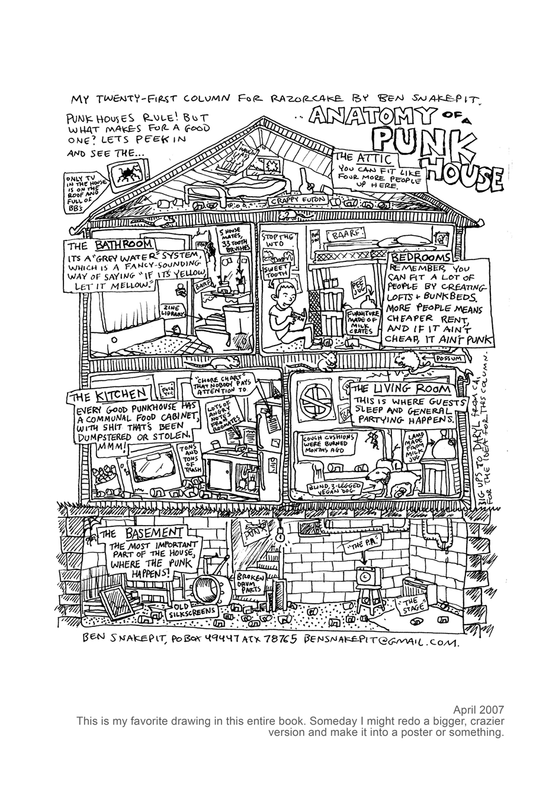 MY TWENTY-FIRST COLUMN FOR RAZORCAKE BY BEN SNAKEPIT.
PUNK HOUSES RULE! BUT
WHAT MAKES FOR A GOOD
ONE? LETS PEEK IN
AND SEE THE...
ANATOMY OF A
PUNK
HOUSE
ONLY TV
IN THE HOUSE
IS ON THE
ROOF AND
FULL OF
BB'S
THE ATTIC
YOU CAN FIT LIKE
FOUR MORE PEOPLE
UP HERE.
CRAPPY FUTON
THE BATHROOM
ITS A "GREY WATER" SYSTEM,
WHICH IS A FANCY-SOUNDING
WAY OF SAYING "IF IT'S YELLOW,
LET IT MELLOW."
5 HOUSE
MATES,
33 TOOTH
BRUSHES
ZINE
LIBRARY
STOP THE
WTO
SWEET
TOOTH
BAARF
FURNITURE
MADE OF
MILK
CRATES
BEDROOMS
REMEMBER, YOU
CAN FIT A LOT OF
PEOPLE BY CREATING
LOFTS & BUNKBEDS.
MORE PEOPLE MEANS
CHEAPER RENT,
AND IF IT AIN'T
CHEAP, IT AIN'T PUNK
POSSUM
THE KITCHEN
EVERY GOOD PUNKHOUSE HAS
A COMMUNAL FOOD CABINET,
WITH SHIT THAT'S BEEN
DUMPSTERED OR STOLEN.
MMM!
"CHORE CHART"
THAT NOBODY PAYS
ATTENTION TO
TONS
AND
TONS OF
TRASH
THE LIVING ROOM
THIS IS WHERE GUESTS
SLEEP AND GENERAL
PARTYING HAPPENS.
COUCH CUSHIONS
WERE BURNED
MONTHS AGO
LAMP
MADE
FROM
MILK
JUG
BLIND, 3-LEGGED
VEGAN DOG
BIG UPS TO DARYLL FROM CA.
FOR THE IDEA FOR THIS COLUMN.
THE BASEMENT
THE MOST IMPORTANT
PART OF THE HOUSE,
WHERE THE PUNK
HAPPENS!
OLD
SILKSCREENS
BROKEN
DRUM
PARTS
"THE P.A."
"THE
STAGE"
BEN SNAKEPIT, PO BOX 49447 ATX 78765 BENSNAKEPIT@GMAIL.COM.
April 2007
This is my favorite drawing in this entire book. Someday I might redo a bigger, crazier
version and make it into a poster or something.